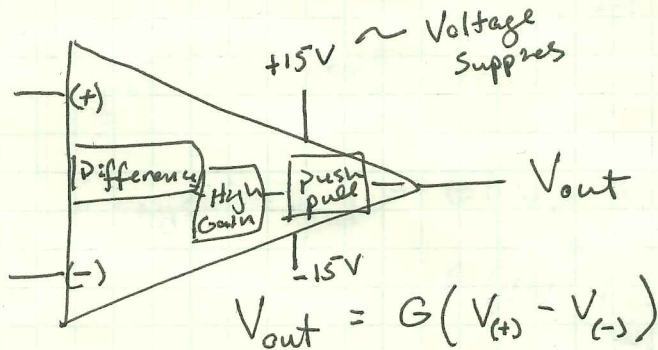 +15V ~ Voltage
Suppies
(+)
Difference
High
Gain
Push
pull
Vout
(-)
-15V
Vout = G(V(+) - V(-))